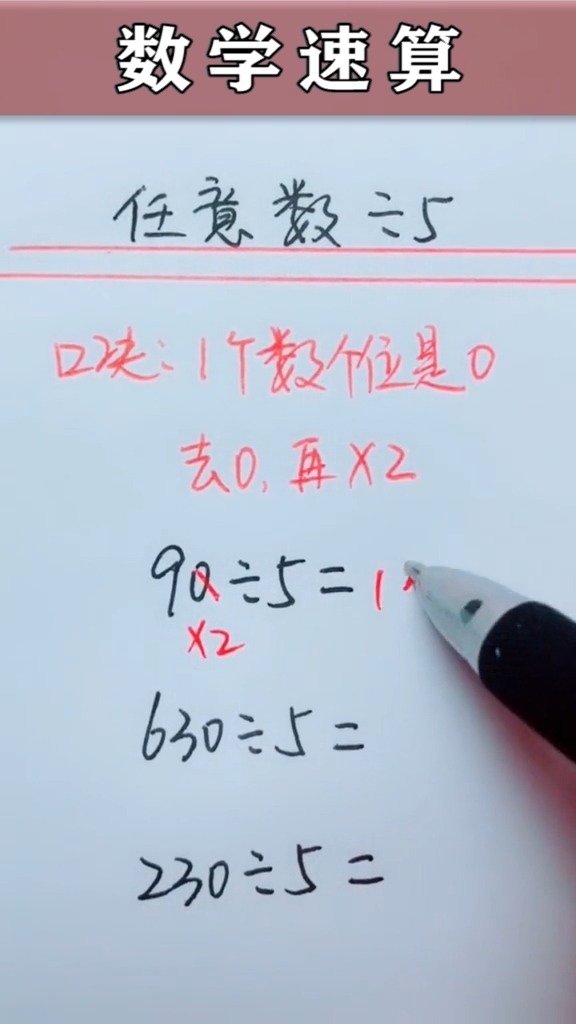 数学速算
任意数÷5
口决：1个数个位是0
去0，再×2
90÷5=1
×2
630÷5=
230÷5=